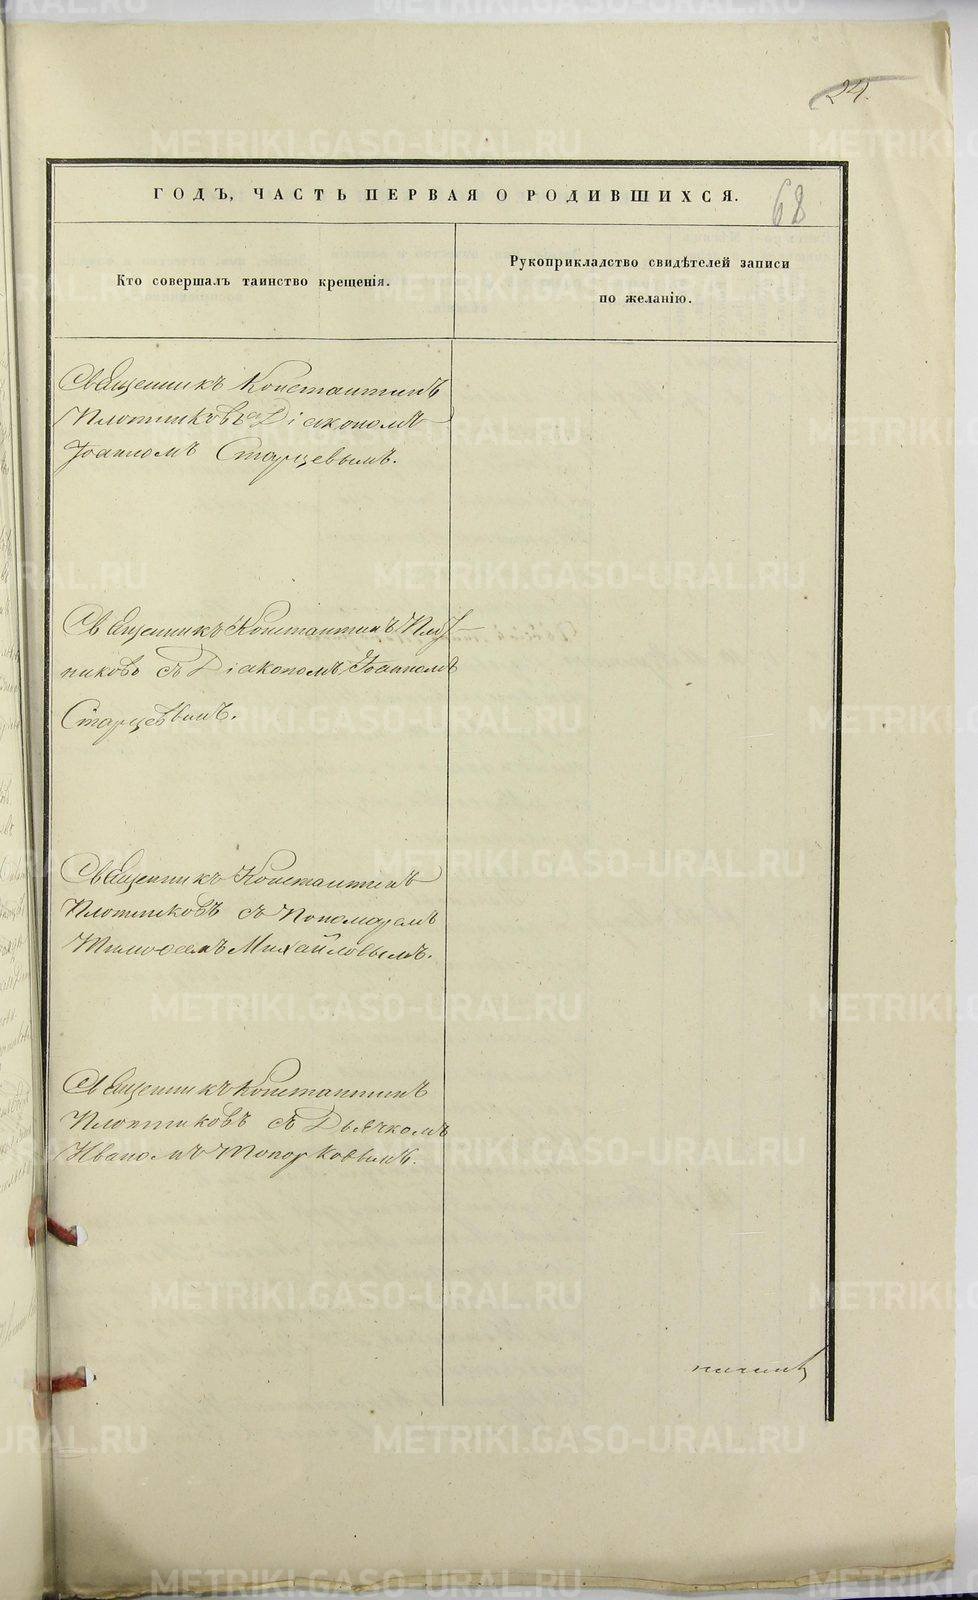 24.
ГОДЪ, ЧАСТЬ ПЕРВАЯ О РОДИВШИХСЯ.
68
Кто совершалъ таинство крещенія.
Рукоприкладство свидѣтелей записи
по желанію.
Священникъ Константинъ
Плотниковъ съ Діакономъ
Іоанномъ Старцевымъ.
Священникъ Константинъ Плот
никовъ съ Діакономъ Іоанномъ
Старцевымъ.
Священникъ Константинъ
Плотниковъ съ Пономаремъ
Тимофеемъ Михайловымъ.
Священникъ Константинъ
Плотниковъ съ Дьячкомъ
Иваномъ Топорковымъ.
METRIKI.GASO-URAL.RU